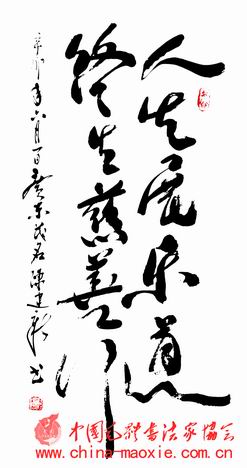 人生展乐道
终生慈善行
辛卯年六月一日广东茂名陈建新书
中国毛体书法家协会
www.china-maoxie.com.cn